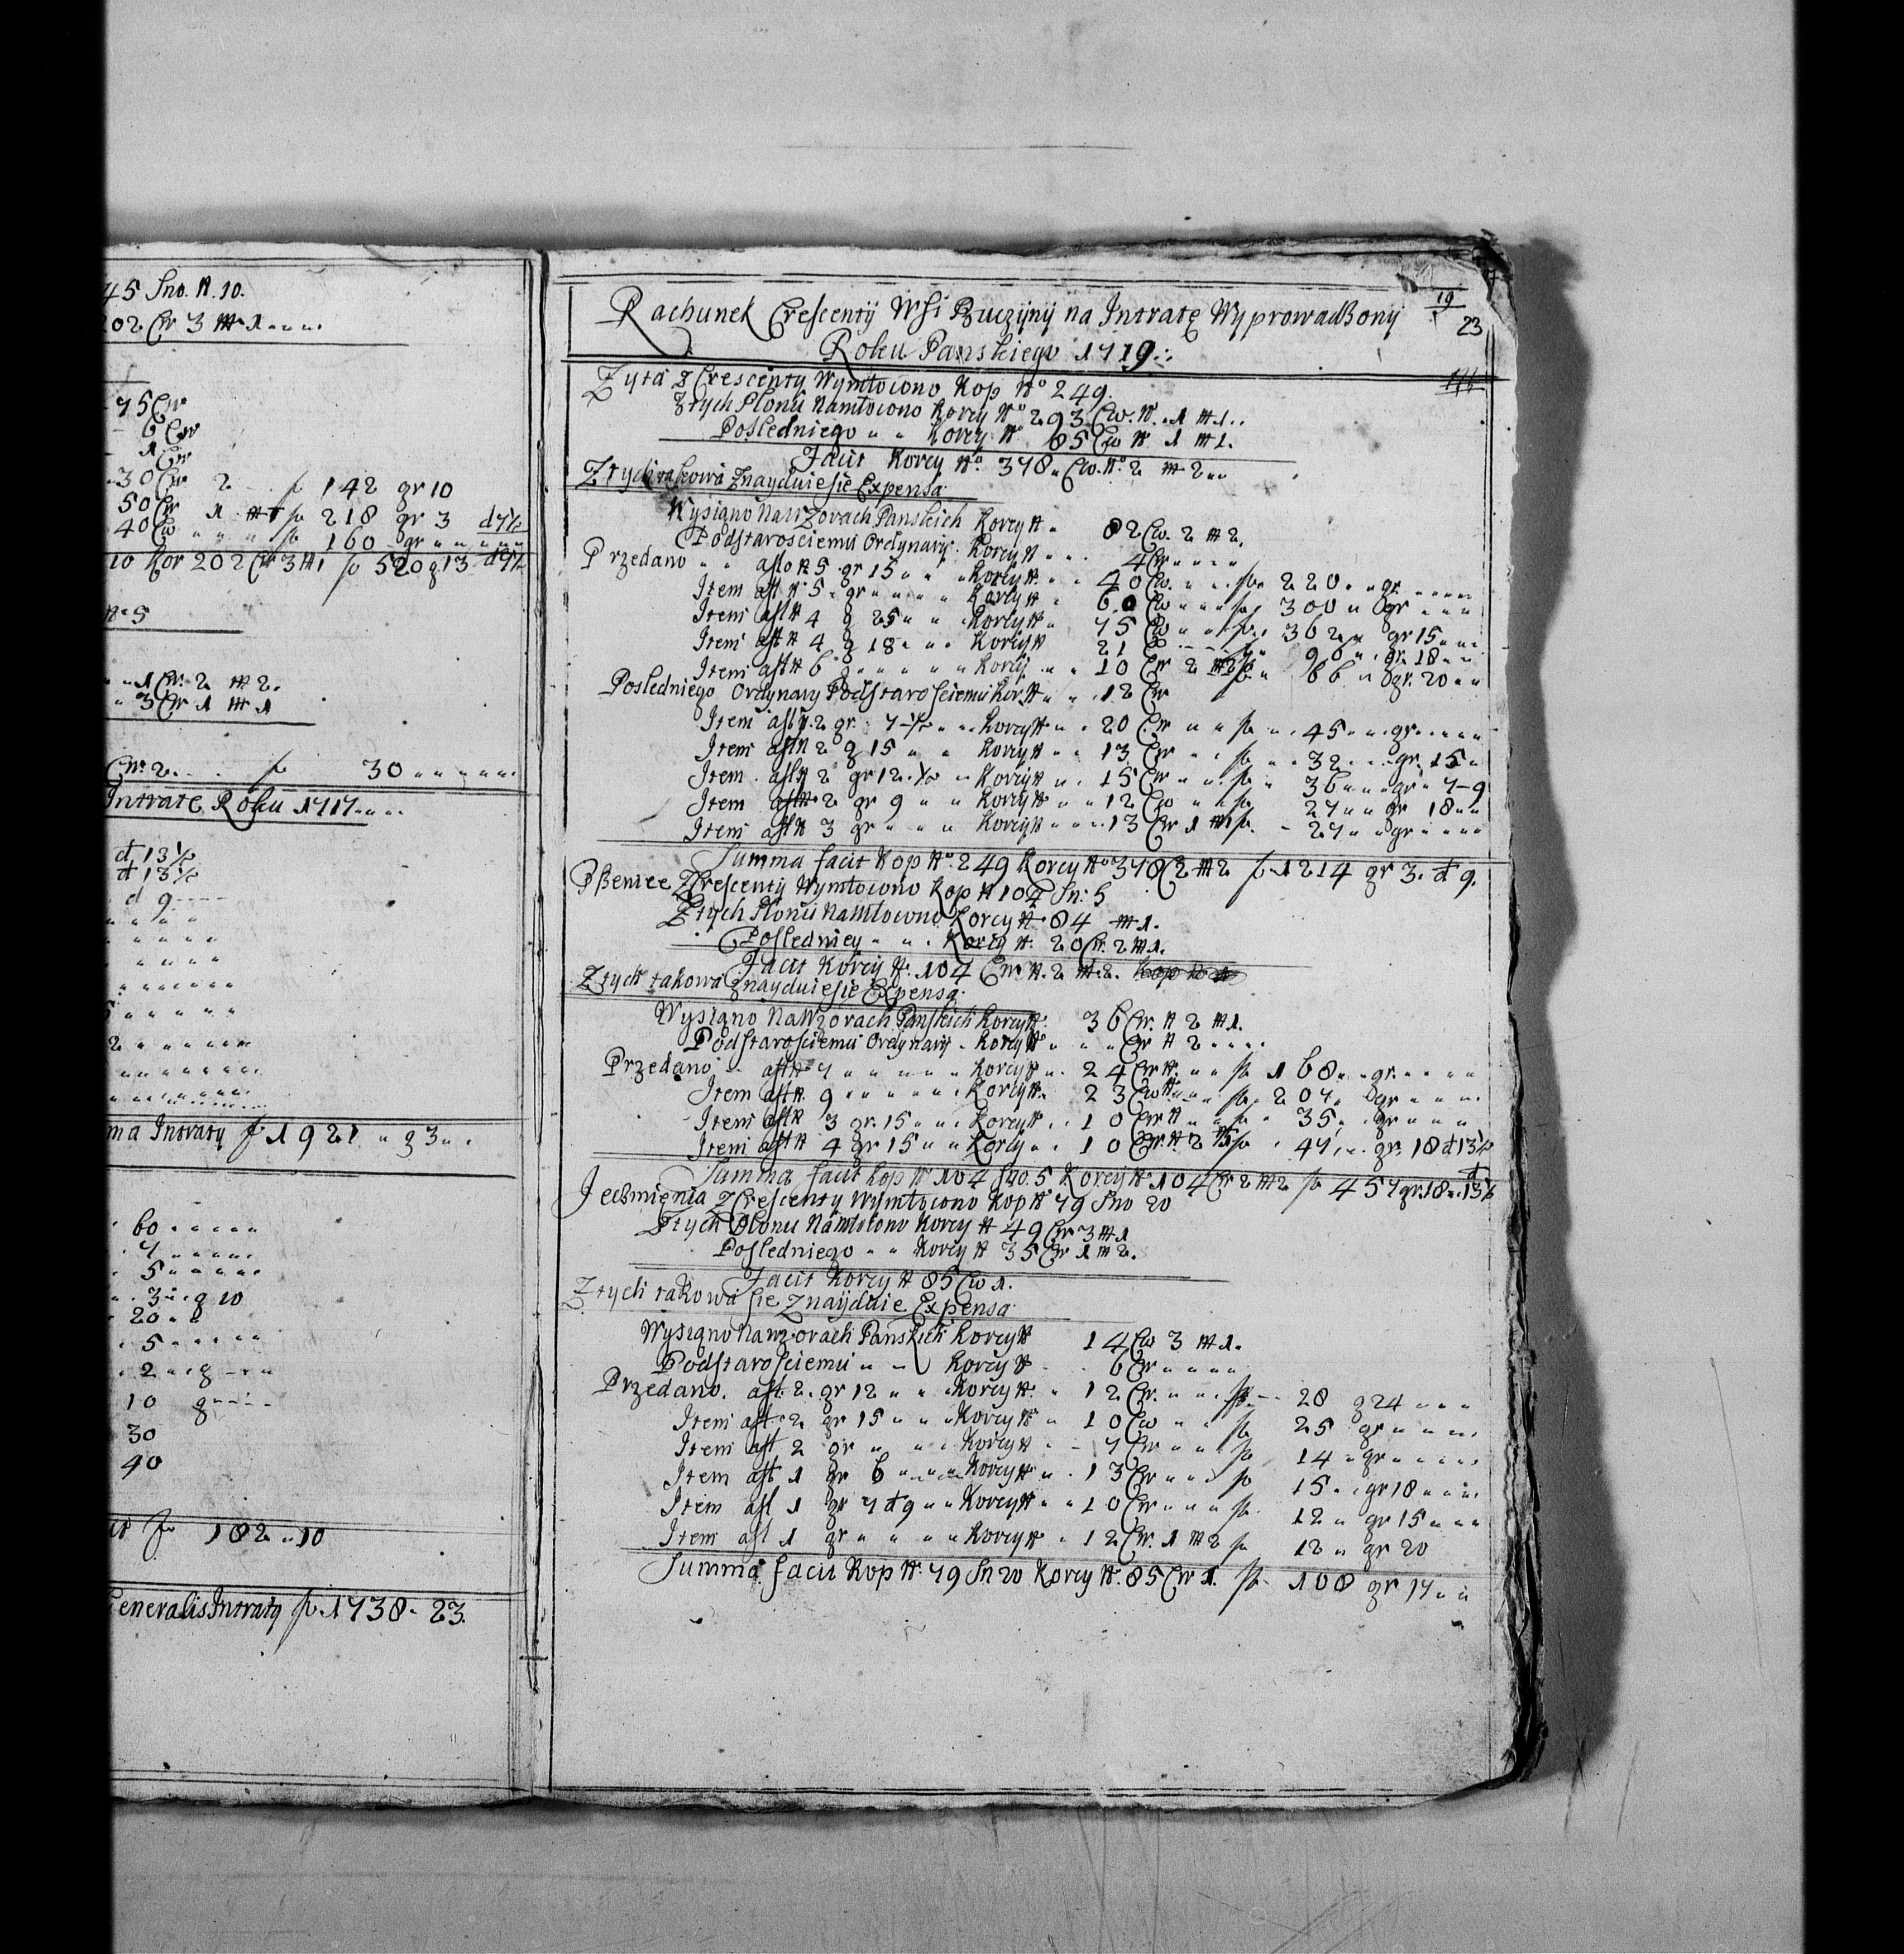 45 Sno. N. 10.
202 Cw 3 m 1
75 Cw
6 Cw
1 Cw
30 Cw 2 fl 142 gr 10
50 Cw 1 m 1 fl 218 gr 3 d 7½
40 Cw fl 160 gr
10 Kor 202 Cw 3 m 1 fl 520 g 13 d 7½
No 5
1 Cw. 2 m 2.
3 Cw 1 m 1
Cw. 2. fl 30
Intratę Roku 1717
d 13½
d 13½
d 9
ma Intraty fl 1921 g 3
60
7
5
3 g 10
20
5
2 g
10 g
30
40
fl 182 10
Generalis Intraty fl. 1738. 23.
19
23
Rachunek Crescentÿ Wsi na Intratę Wyprowadzonÿ
Roku Panskiego 1719
Zyta z Crescentÿ Wymłocono Kop No 249.
Z tych Plonu Namłocono Korcy No 293 Cw. N. 1 m 1.
Posledniego Korcy N 85 Cw N 1 m 1.
Facit Korcy No. 378 Cw. No 2 m 2
Z tych takowa Znayduie sie Expensa
Wysiano Na Wzorach Panskich Korcy N 82 Cw. 2 m 2.
Podstarosciemu Ordynaryi Korcy N 4 Cw
Przedano a fl o N 5 gr 15 Korcy N 40 Cw. fl 220 gr
Item a fl N 5 gr Korcy N 60 Cw fl 300 gr
Item a fl N 4 g 25 Korcy N 75 Cw fl 362 gr 15
Item a fl N 4 g 18 Korcy N 21 C fl 96 gr 18
Item a fl N 6 g Korcy 10 Cw 2 m 2 fl 66 gr. 20
Posledniego Ordynary Podstarosciemu Kor. N 12 Cw
Item a fl 2 gr. 7½ Korcy N 20 Cw fl 45 gr
Item a fl N 2 g 15 Korcy N 13 Cw fl 32 gr. 15
Item a fl N 2 gr 12.½ Korcy N 15 Cw fl 36 gr 7-9
Item a fl N 2 gr 9 Korcy N 12 Cw fl 27 gr 18
Item a fl N 3 gr Korcy N 13 Cw 1 m 1 fl 27 gr
Summa facit Kop No 249 Korcy No 378 C 2 m 2 fl 1214 gr 3. d 9.
Pszenice Z Crescentÿ Wymłocono Kop N 104 Sn: 5
Z tych Plonu Namłocono Korcy N 84 m 1.
Posledniey Korcy N. 20 Cw. 2 m 1.
Facit Korcy N. 104 Cw N. 2 m 2.
Z tych takowa Znayduie sie Expensa
Wysiano Na Wzorach Panskich Korcy N 36 Cw. N 2 m 1.
Podstarosciemu Ordynaryi Korcy N Cw N 2
Przedano a fl N 7 Korcy N 24 Cw N. fl 168 gr.
Item a fl N. 9 Korcy N. 23 Cw N fl 207 gr
Item a fl N 3 gr. 15 Korcy N 10 Cw N fl 35 gr
Item a fl N 4 gr 15 Korcy 10 Cw. N 2 m 1 fl 47 gr. 18 d 13½
Summa facit Kop N 104 Sno. 5 Korcy N 104 Cw 2 m 2 fl 457 gr. 18 d 13½
Jecbmienia Z Crescentÿ Wymłocono Kop N 79 Sno 20
Z tych Plonu Namłocono Korcy N 49 Cw 3 m 1
Posledniego Korcy N 35 Cw 1 m 2.
Facit Korcy N 85 Cw 1.
Z tych takowa sie Znaÿduie Expensa
Wysiano Na Wzorach Panskich Korcy N 14 Cw 3 m 1.
Podstarosciemu Korcy N 6 Cw
Przedano. a fl. 2. gr 12 Korcy N. 12 Cw. fl 28 g 24
Item a fl 2 gr 15 Korcy N 10 Cw fl 25 gr
Item a fl 2 gr Korcy N 7 Cw fl 14 gr
Item a fl 1 gr 6 Korcy N 13 Cw fl 15 gr 18
Item a fl 1 gr 7 d 9 Korcy N 10 Cw fl 12 gr 15
Item a fl 1 gr Korcy N 12 Cw. 1 m 2 fl 12 gr 20
Summa facit Kop N. 79 Sn 20 Korcy N. 85 Cw 1. fl 108 gr 17